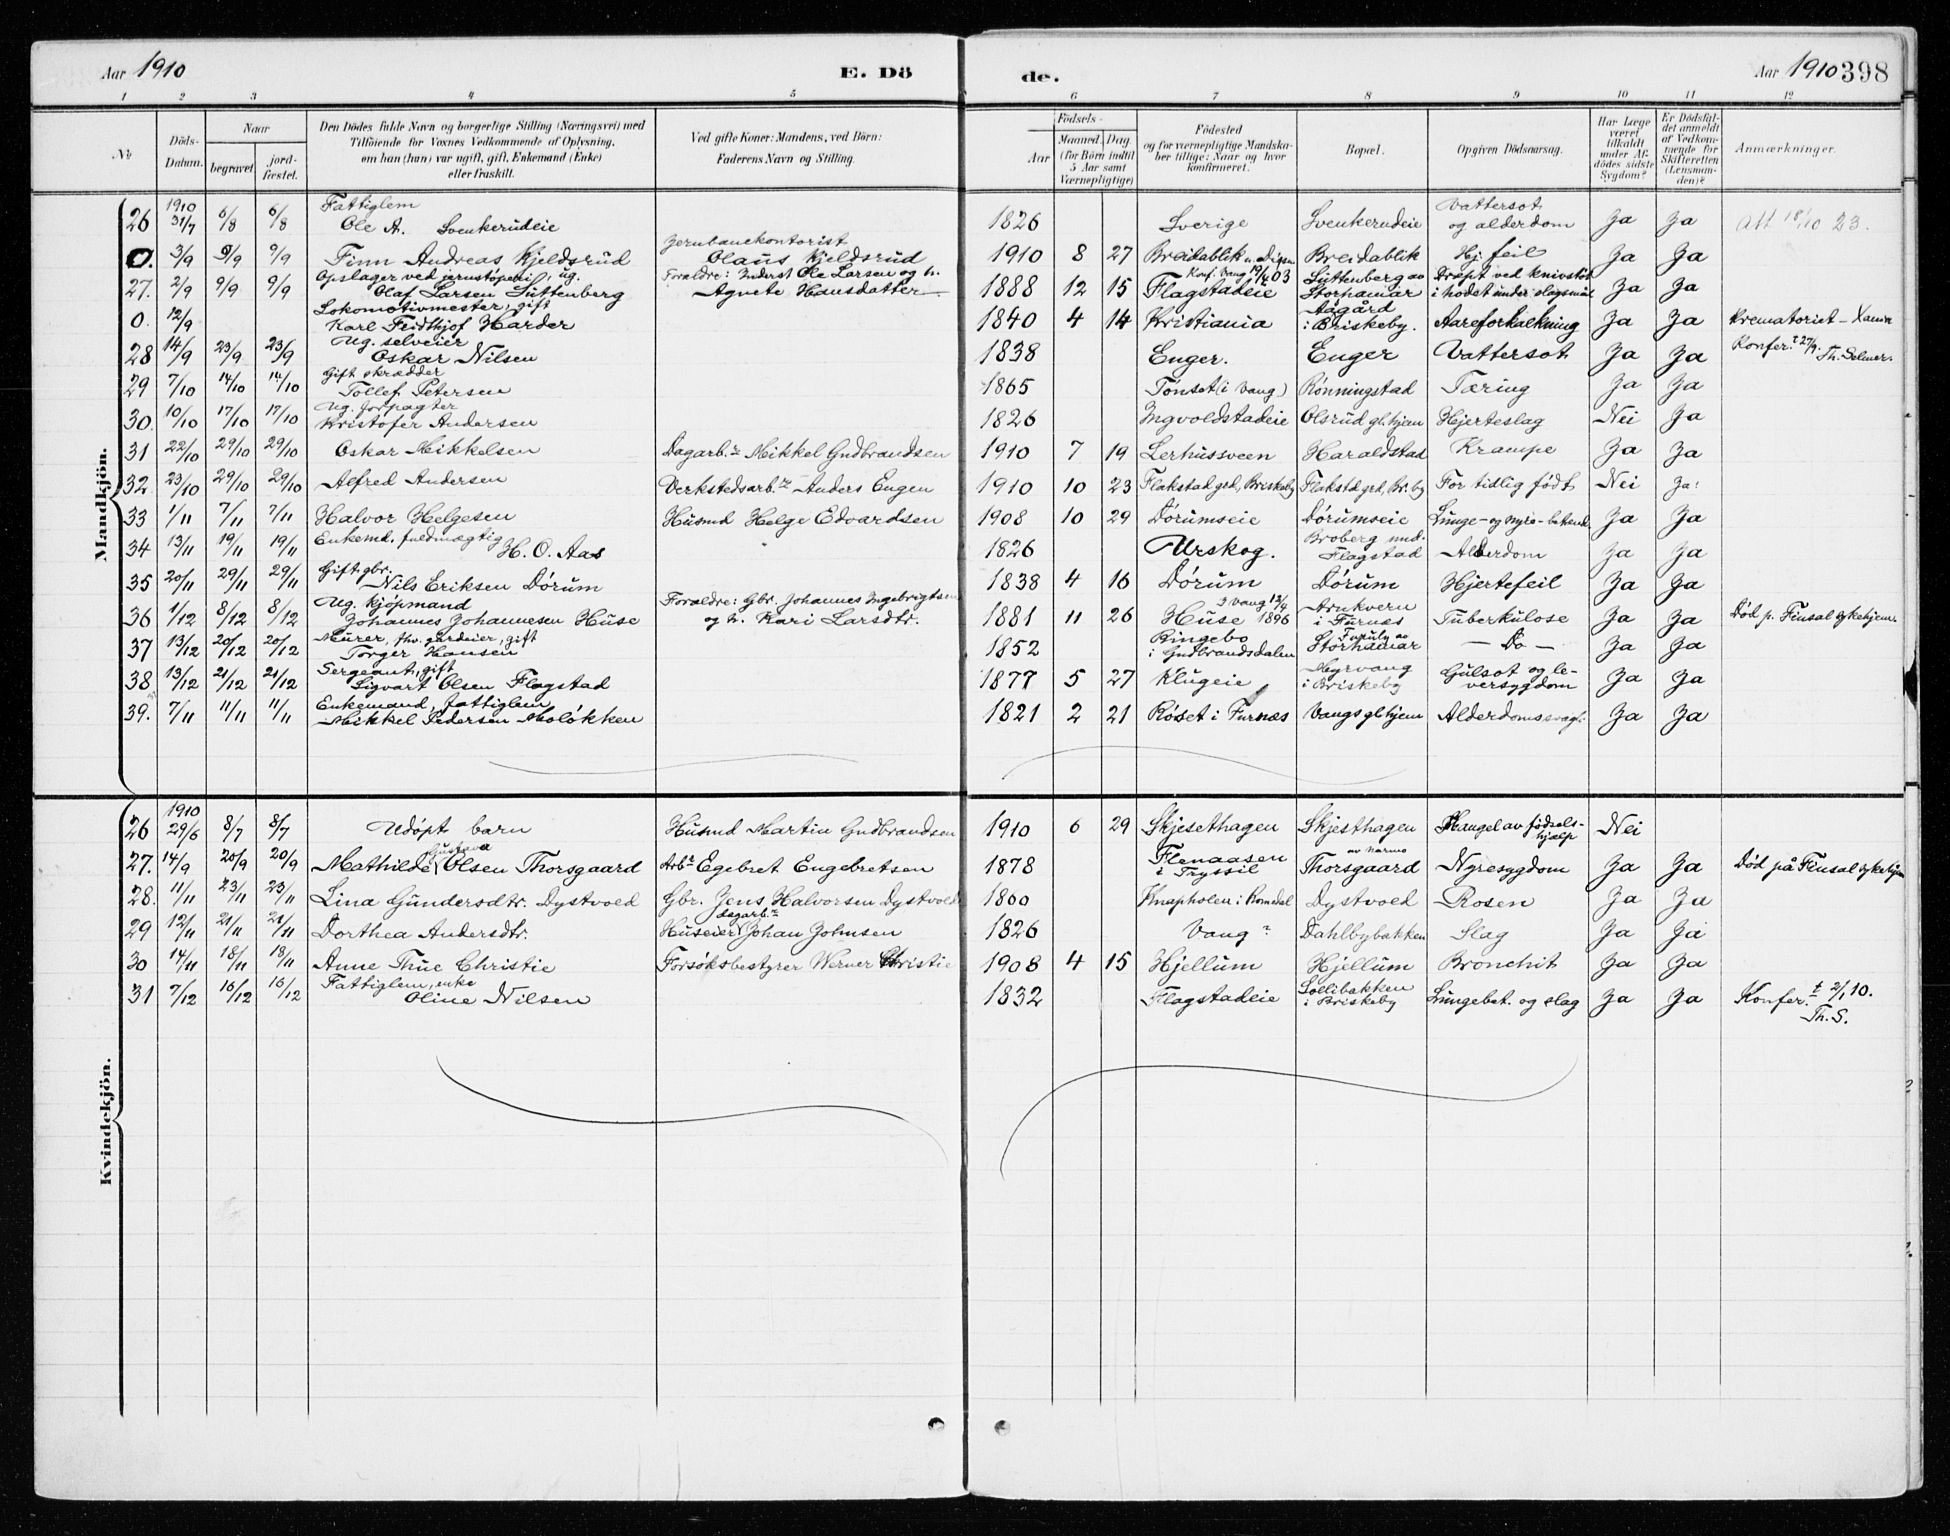 Aar 1910 E. Dö de. Aar 1910 398
1 2 3 4 5 6 7 8 9 10 11 12
No
Döds-Datum.
Naar begravet. jordfæstet.
Den Dödes fulde Navn og borgerlige Stilling (Næringsvei) med
Tilföiende for Voxnes Vedkommende af Oplysning,
om han (hun) var ugift, gift, Enkemand (Enke)
eller fraskilt.
Ved gifte Koner: Mandens, ved Börn:
Faderens Navn og Stilling.
Födsels-
Aar Maaned. Dag.
(for Börn indtil 5 Aar samt Værnepligtige)
Födested
og for værnepligtige Mandskaber tillige: Naar og hvor konfirmeret.
Bopæl.
Opgiven Dödsaarsag.
Har Læge været tilkaldt under Afdödes sidste Sygdom?
Er Dödsfaldet anmeldt af Vedkommende for Skifteretten (Lensmanden)?
Anmærkninger.
Mandkjön.
26 1910 31/7 6/8 6/8 Fattiglem Ole A. Svenkerudeie 1826 Sverige Svenkerudeie Vattersot og alderdom Ja Ja Att 18/10 23.
0. 3/9 9/9 9/9 Finn Andreas Kjeldsrud Jernbanekontorist Olaus Kjeldsrud 1910 8 27 Breidablik Breidablik Hj. feil Ja Ja
27. 2/9 9/9 9/9 Opslager ved jernstøperi, ug. Olaf Larsen Luttenberg Forældre: Inderst Ole Larsen og h. Agnete Hansdatter 1888 12 15 Konf. Vang 19/4 03 Flagstadeie Luttenberg av Storhamar Dræpt ved knivstik i hodet under slagsmål Ja Ja
0. 12/9 Lokomotivmester, gift Karl Feidthjof Harder 1840 4 14 Kristiania Aagård i Briskeby. Aareforkalkning Ja Ja Krematoriet - Xania
28 14/9 23/9 23/9 Ug. selveier Oskar Nilsen 1838 Enger. Enger Vattersot Ja Ja Konfer.t 27/9. Th. Selmer.
29 7/10 14/10 14/10 Gift skrædder Tollef Petersen 1865 Tønset (i Vang) Rønningstad Tæring Ja Ja
30. 10/10 17/10 17/10 Ug. forpagter Kristofer Andersen 1826 Ingvoldstadeie Olsrud gl. hjem Hjerteslag Nei Ja
31 22/10 29/10 29/10 Oskar Mikkelsen Dagarb.r Mikkel Gudbrandsen 1910 7 19 Lerhussveen Haraldstad Krampe Ja Ja
32. 23/10 29/10 29/10 Alfred Andersen Verkstedsarb.r Anders Engen 1910 10 23 Flakstad grd, Briskeby Flakstd grd, Br.by For tidlig født Nei Ja
33 1/11 7/11 7/11 Halvor Helgesen Husmd Helge Edvardsen 1908 10 29 Dørumseie Dørumseie Lunge- og nyre-betend. Ja Ja
34 13/11 19/11 19/11 Enkemd. fuldmægtig H. O. Aas 1826 Urskog. Broberg und. Flagstad Alderdom Ja Ja
35 20/11 29/11 29/11 Gift gbr. Nils Eriksen Dørum 1838 4 16 Dørum Dørum Hjertefeil Ja Ja
36 1/12 8/12 8/12 Ug. kjøpmand Johannes Johannesen Huse Forældre: Gbr. Johannes Ingebrigtsen og h. Kari Larsdtr. 1881 11 26 Huse I Vang 12/4 1896 Arnkvern i Furnes Tuberkulose Ja Ja Død p. Finsal sykehjem.
37 13/12 20/12 20/12 Murer, fhv. gardeier, gift Torger Hansen 1852 Ringebo i Gudbrandsdalen Furuly av Storhamar — Do — Ja Ja
38 13/12 21/12 21/12 Sergeant, gift Sigvart Olsen Flagstad 1877 5 27 Klugeie Myrvang i Briskeby Gulsot og leversygdom Ja Ja
39. 7/11 11/11 11/11 Enkemand, fattiglem Mikkel Pedersen Moløkken 1821 2 21 Røset i Furnes Vangs gl. hjem Alderdomssvagh. Ja Ja
Kvindekjön.
26 1910 29/6 8/7 8/7 Udøpt barn Husmd Martin Gudbrandsen 1910 6 29 Skjesethagen Skjesthagen Mangel av fødselshjælp Nei
27. 14/9 20/9 20/9 Mathilde Gustava Olsen Thorsgaard Arb.r Egebret Engebretsen 1878 Flenaasen i Trysil Thorsgaard av Narmo Nyresygdom Ja Ja Død på Finsal sykehjem
28. 11/11 23/11 23/11 Lina Gundersdtr. Dystvoed Gbr. Jens Halvorsen Dystvold 1860 Knapholen i Romedal Dystvoed Rosen Ja Ja
29 12/11 21/11 21/11 Dorthea Andersdtr. Huseier dagarb.r Johan Johnsen 1826 Vang Dahlbybakken Slag Ja Ja
30 14/11 18/11 18/11 Anne Thue Christie Forsøksbestyrer Werner Christie 1908 4 15 Hjellum Hjellum Bronchit Ja Ja
31 7/12 16/12 16/12 Fattiglem, enke Oline Nilsen 1832 Flagstadeie Lollibakken i Briskeby Lungebet. og slag Ja Ja Konfer.t 2/1 10. Th. S.